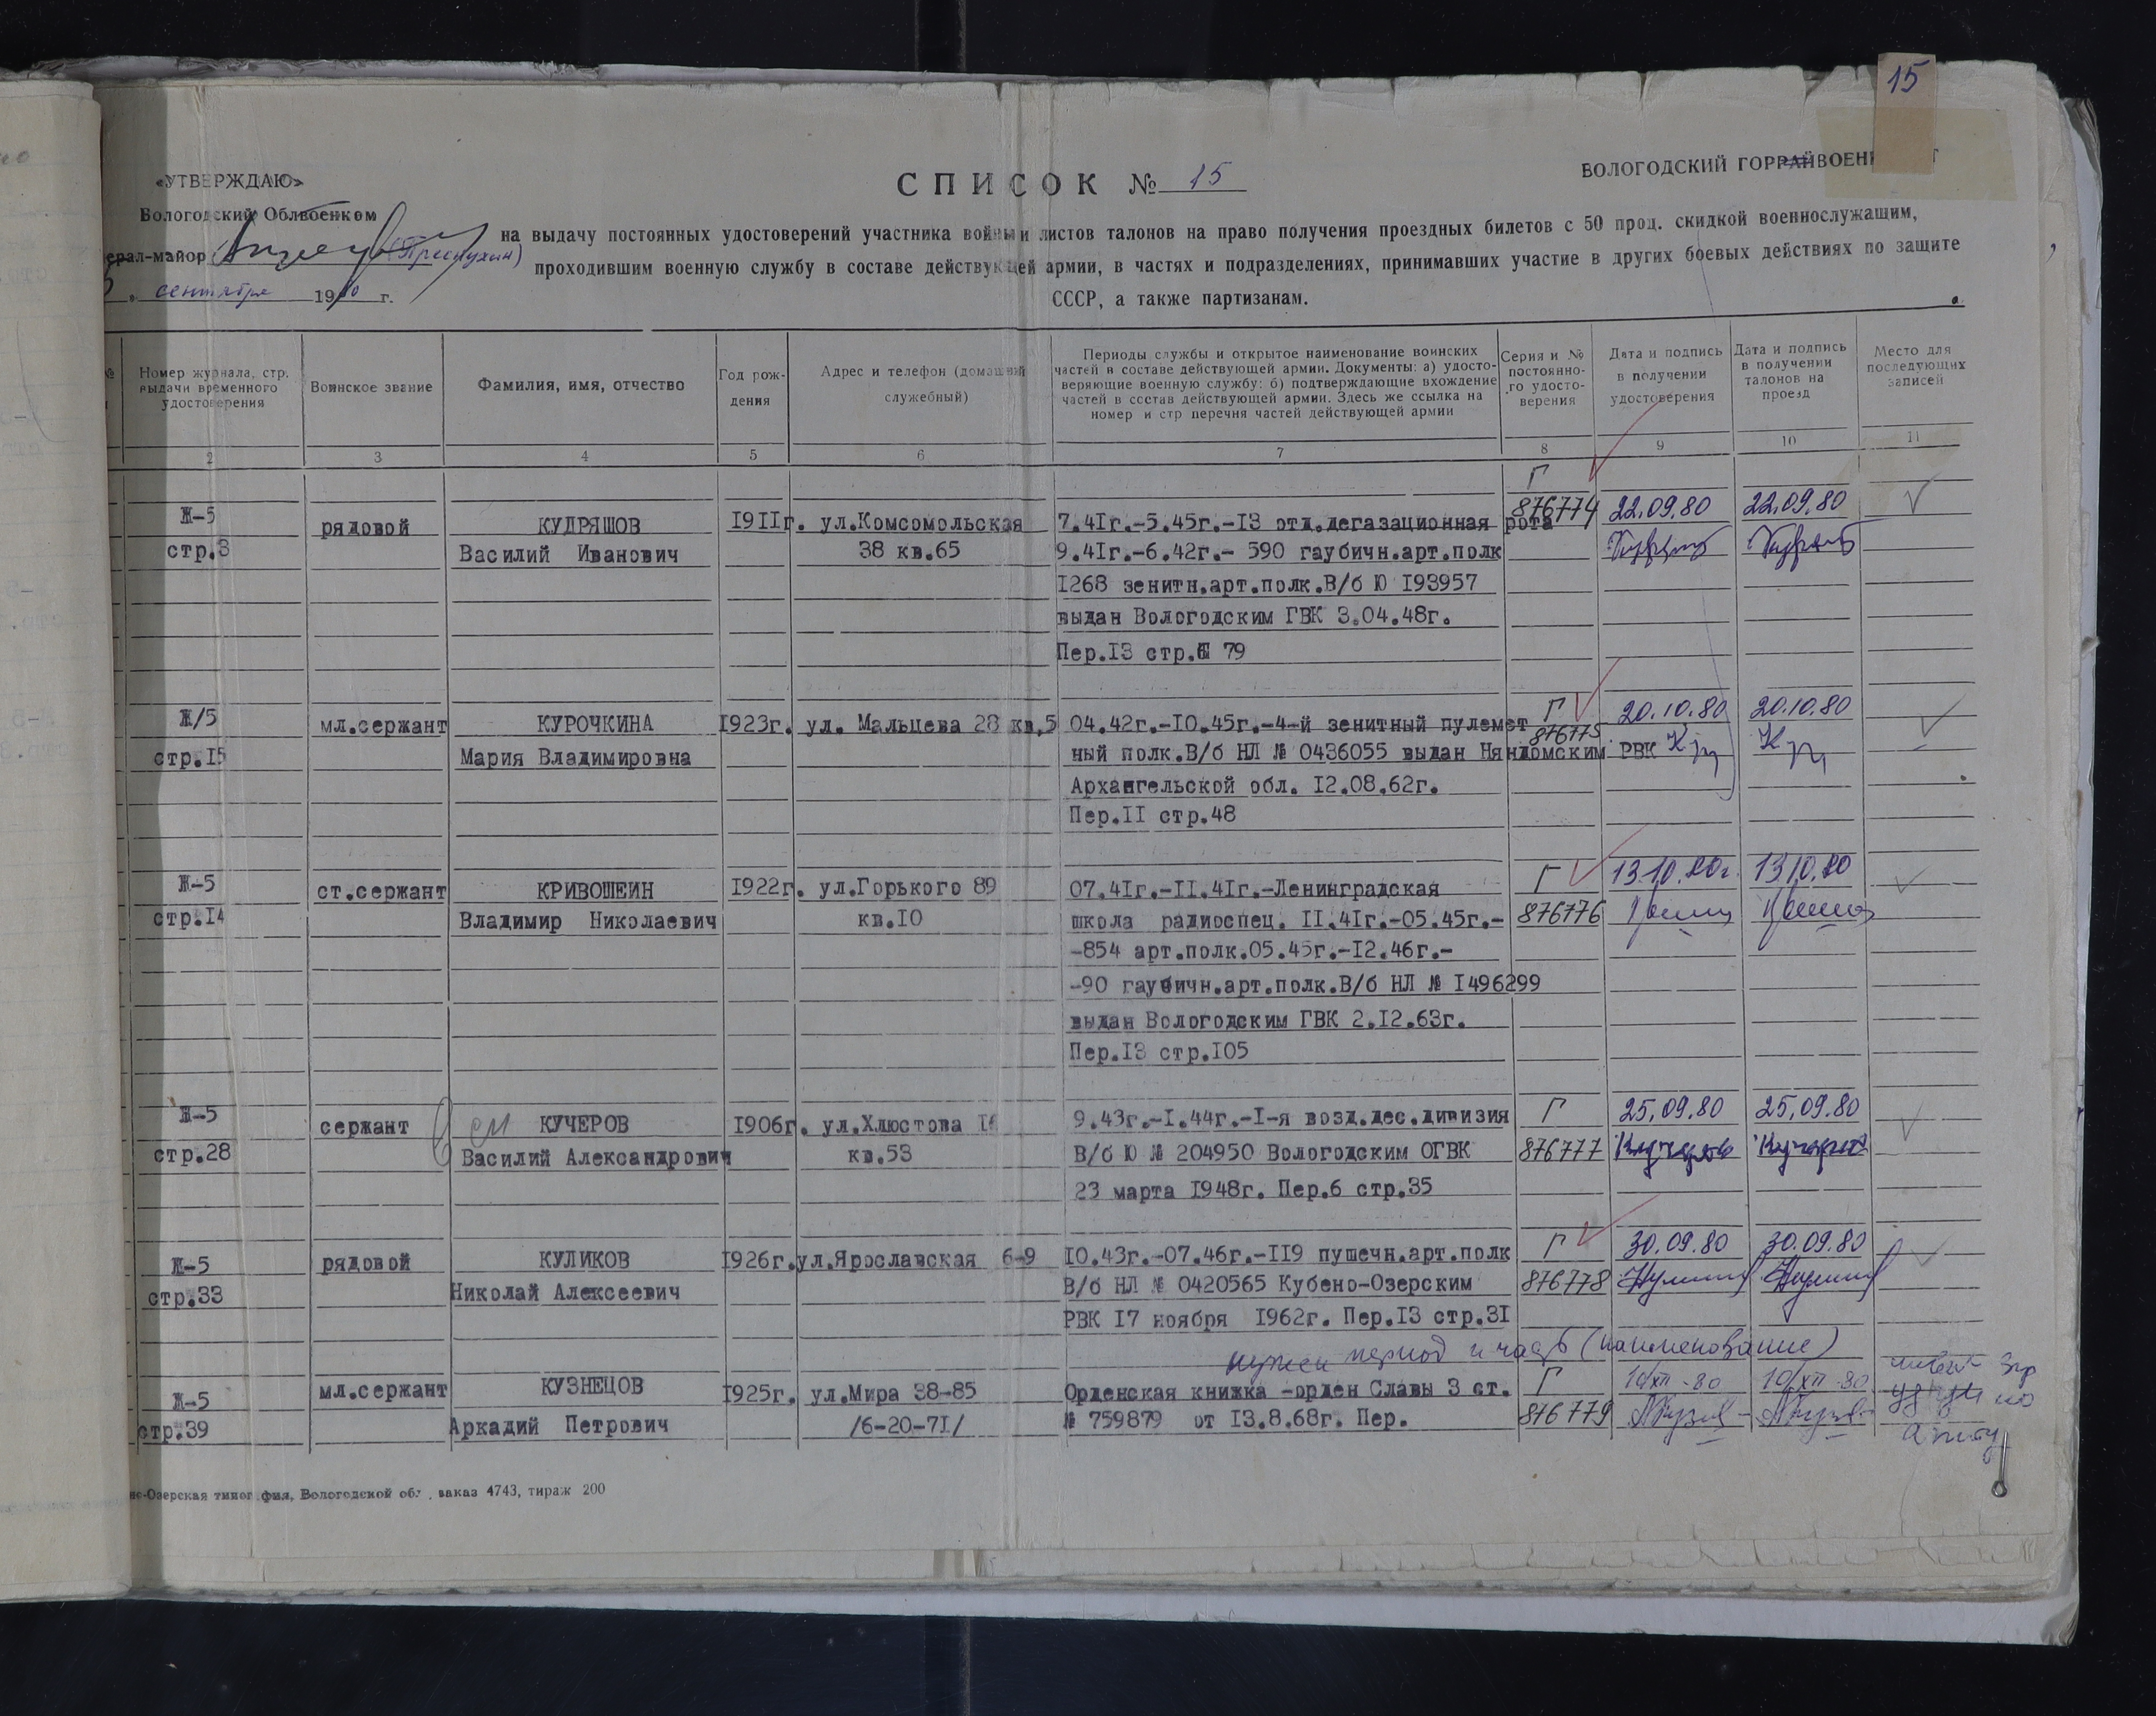 15
«УТВЕРЖДАЮ»
СПИСОК № 15
ВОЛОГОДСКИЙ ГОРРАЙВОЕН
Вологодский Облвоенком
ерал-майор
на выдачу постоянных удостоверений участника войны и листов талонов на право получения проездных билетов с 50 проц. скидкой военнослужащим,
проходившим военную службу в составе действующей армии, в частях и подразделениях, принимавших участие в других боевых действиях по защите
сентября 1980 г.
СССР, а также партизанам.
Номер журнала, стр. выдачи временного удостоверения
Воинское звание
Фамилия, имя, отчество
Год рождения
Адрес и телефон (домашний служебный)
Периоды службы и открытое наименование воинских
частей в составе действующей армии. Документы: а) удосто-
веряющие военную службу: б) подтверждающие вхождение
частей в состав действующей армии. Здесь же ссылка на
номер и стр перечня частей действующей армии
Серия и № постоянно-го удосто-верения
Дата и подпись в получении удостоверения
Дата и подпись в получении талонов на проезд
Место для последующих записей
2 3 4 5 6 7 8 9 10 11
Г
Ж-5 рядовой КУДРЯШОВ 1911г. ул.Комсомольская 7.41г.-5.45г.-13 отд.дегазационная рота 876774 22.09.80 22.09.80
стр.3 Василий Иванович 38 кв.65 9.41г.-6.42г.- 590 гаубичн.арт.полк
1268 зенитн.арт.полк.В/б Ю 193957
выдан Вологодским ГВК 3.04.48г.
Пер.13 стр. 79
Ж/5 мл.сержант КУРОЧКИНА 1923г. ул. Мальцева 28 кв.5 04.42г.-10.45г.-4-й зенитный пулемет Г 20.10.80 20.10.80
876775
стр.15 Мария Владимировна ный полк.В/б НЛ № 0436055 выдан Няндомским РВК
Архангельской обл. 12.08.62г.
Пер.11 стр.48
Ж-5 ст.сержант КРИВОШЕИН 1922г. ул.Горького 89 07.41г.-11.41г.-Ленинградская Г 13.10.80г. 13.10.80
стр.14 Владимир Николаевич кв.10 школа радиоспец. 11.41г.-05.45г.- 876776
-854 арт.полк.05.45г.-12.46г.-
-90 гаубичн.арт.полк.В/б НЛ № 1496299
выдан Вологодским ГВК 2.12.63г.
Пер.13 стр.105
Ж-5 сержант см КУЧЕРОВ 1906г. ул.Хлюстова 16 9.43г.-1.44г.-1-я возд.дес.дивизия Г 25.09.80 25.09.80
стр.28 Василий Александрович кв.53 В/б Ю № 204950 Вологодским ОГВК 876777 Кучеров Кучеров
23 марта 1948г. Пер.6 стр.35
Ж-5 рядовой КУЛИКОВ 1926г. ул.Ярославская 6-9 10.43г.-07.46г.-119 пушечн.арт.полк Г 30.09.80 30.09.80
стр.33 Николай Алексеевич В/б НЛ № 0420565 Кубено-Озерским 876778
РВК 17 ноября 1962г. Пер.13 стр.31
нужен период и часть (наименование)
Ж-5 мл.сержант КУЗНЕЦОВ 1925г. ул.Мира 38-85 Орденская книжка -орден Славы 3 ст. Г 10/XII-80 10/XII-80
стр.39 Аркадий Петрович /6-20-71/ № 759879 от 13.8.68г. Пер. 876779
но-Озерская типография, Вологодской обл., заказ 4743, тираж 200